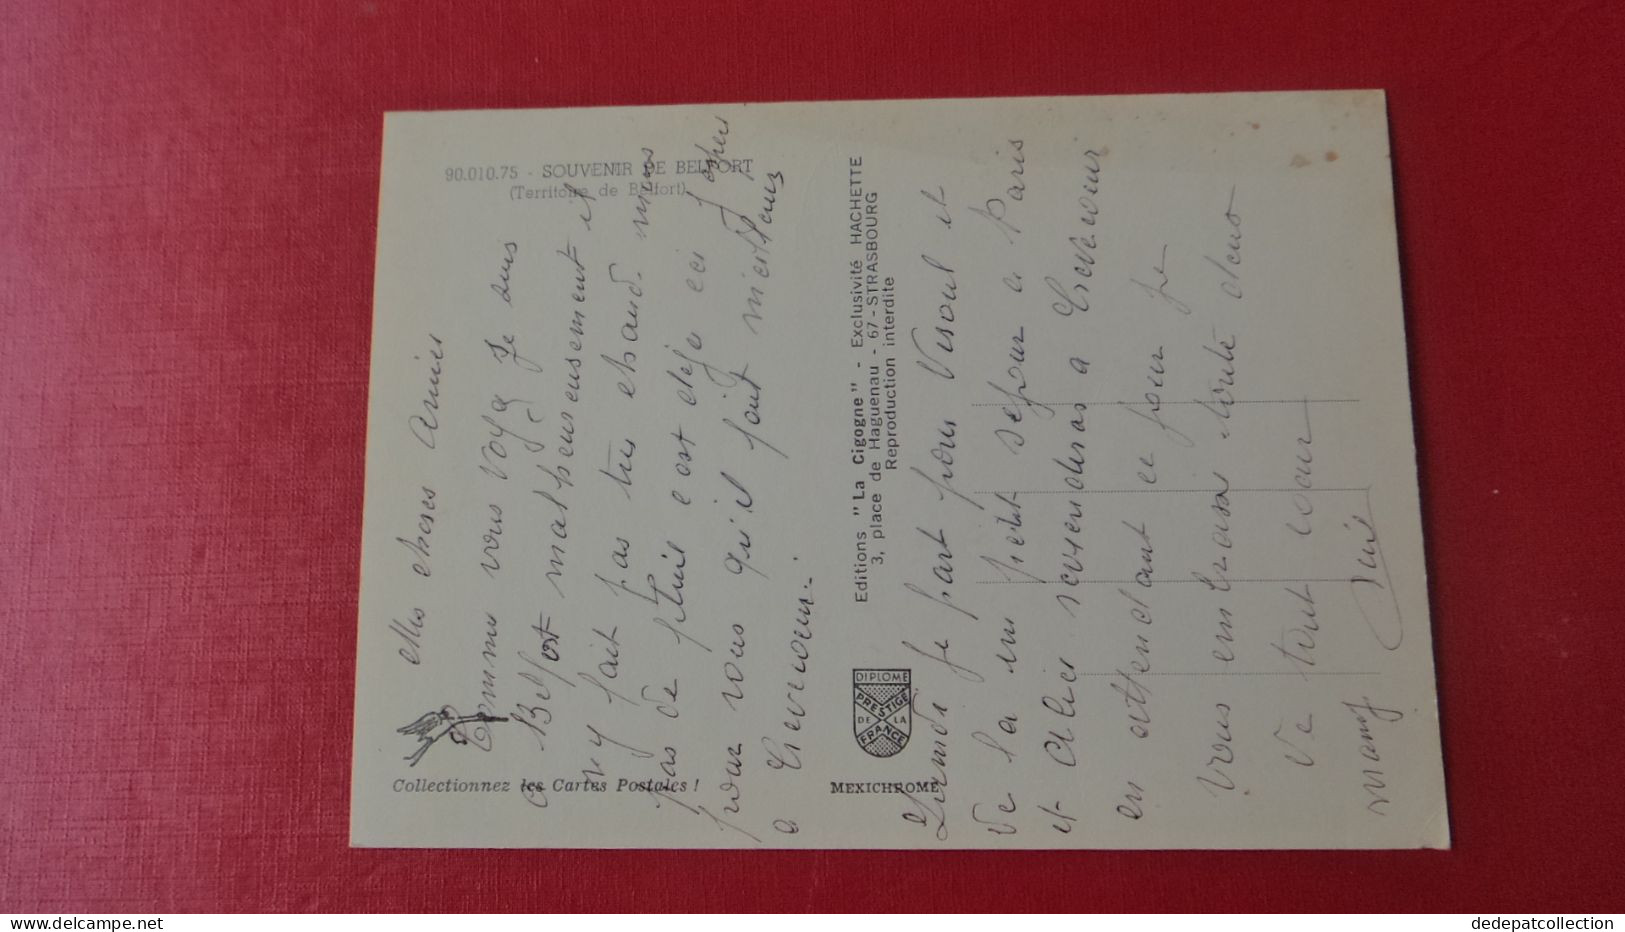 90.010.75 - SOUVENIR DE BELFORT
(Territoire de Belfort)
Mes cheres Amies
Comme vous voyez Je suis
a Belfort malheureusement il
n y fait pas tres chaud mais
pas de pluie c est deja ca J espere
pour vous qu'il fait meilleur
a
Collectionnez les Cartes Postales !
Editions "La Cigogne" - Exclusivité HACHETTE
3, place de Haguenau - 67 - STRASBOURG
Reproduction interdite
DIPLOME
PRESTIGE
DE LA
FRANCE
MEXICHROME
Je part pour Vesoul et
de la un petit sejour a Paris
et reviendras a
en attendant ce jour Je
vous embrasse toute deux
de tout coeur
dedepatcollection